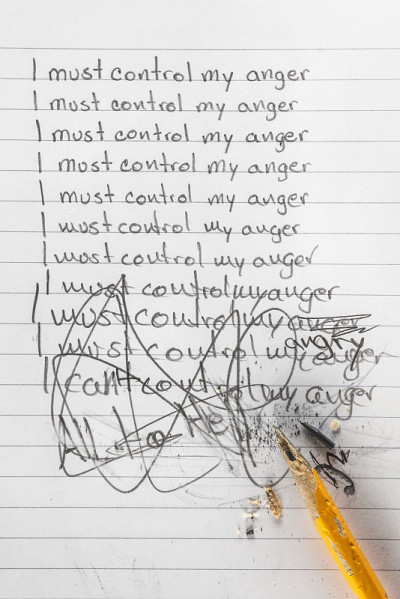 I must control my anger
I must control my anger
I must control my anger
I must control my anger
I must control my anger
I must control my anger
I must control my anger
I must control my anger
I must control my anger
angry
I must control my anger
I can't control my anger